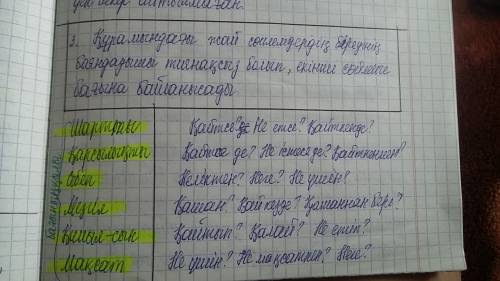 3. Құрамындағы жай сөйлемдердің біреуінің
баяндауышы тиянақсыз болып, екінші сөйлемге
бағына байланысады
Шартты Қайтсе? Не етсе? Қайткенде?
Қарсылықты Қайтсе де? Не істесе де? Қайткенмен?
Себеп Неліктен? Неге? Не үшін?
Мезгіл Қашан? Қай кезде? Қашаннан бері?
Қимыл-сын Қайтып? Қалай? Не етіп?
Мақсат Не үшін? Не мақсатпен? Неге?